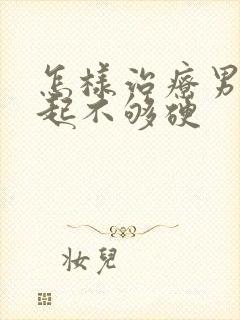 怎樣治療男
起不够硬
妝兒